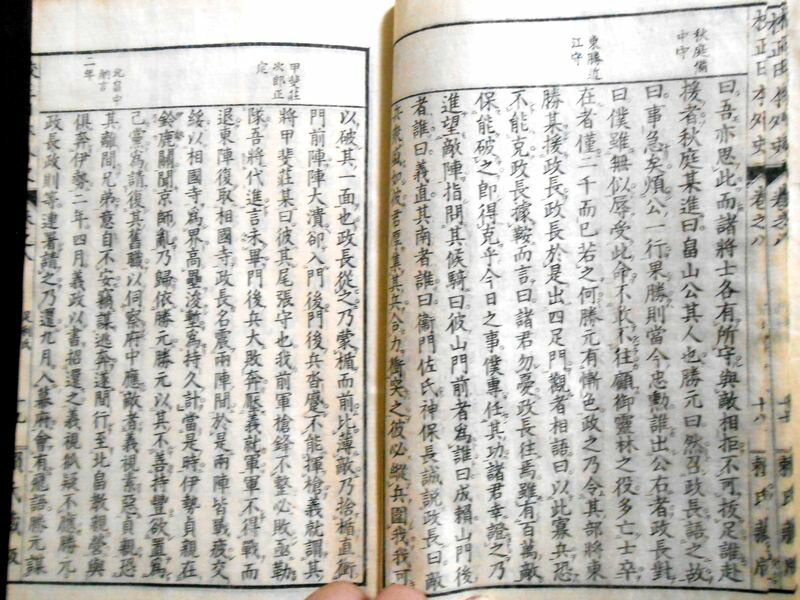 校正日本外史 巻之八 十八 頼氏蔵版
秋庭備
中守
東勝近
江守
曰吾亦思此而諸將士各有所守與敵相拒不可拔足誰赴
援者秋庭某進曰畠山公其人也勝元曰然召政長語之故
曰事急矣煩公一行果勝則當今忠勲誰出公右者政長對
曰僕雖無似辱受此命不敢不往顧御靈林之役多亡士卒
在者僅二千而已若之何勝元有慚色政之乃令其部將東
勝某援政長政長於是出四足門觀者相語曰以此寡兵恐
不能克政長據鞍而言曰諸君勿憂政長往焉雖有百萬敵
保能破之即得克乎今日之事僕專任其功諸君幸證之乃
進望敵陣指問其候騎曰彼山門前者爲誰曰成賴山門後
者誰曰義直其南者誰曰衞門佐氏神保長誠説政長曰敵
集其兵合力衝突之彼必縱兵圍我我可
甲斐莊
次郎正
定
北畠中
納言
二年
以破其一面也政長從之乃蒙楯而前比薄敵乃捨楯直衝
門前陣陣大潰卻入門後門後兵沓蹙不能揮槍義就謂其
將甲斐莊某曰彼其尾張守也我前軍槍鋒不整必敗亟勒
隊吾將代進言未畢門後兵大敗奔壓義就軍軍不得戰而
退東陣復取相國寺政長名震兩陣間於是兩陣皆戰疲交
綏以相國寺爲界高壘浚塹爲持久計當是時伊勢貞親在
鈴鹿關聞京師亂乃歸依勝元勝元以其不善持豐欲置爲
己黨爲請復其舊職以伺察府中應敵者義視素惡貞親恐
其離間兄弟意自不安竊謀逃奔遂間行至北畠教親營與
俱奔伊勢二年四月義政以書招還之義視狐疑不應勝元
政長政則等連署請之乃還九月入幕府會有飛語勝元謀